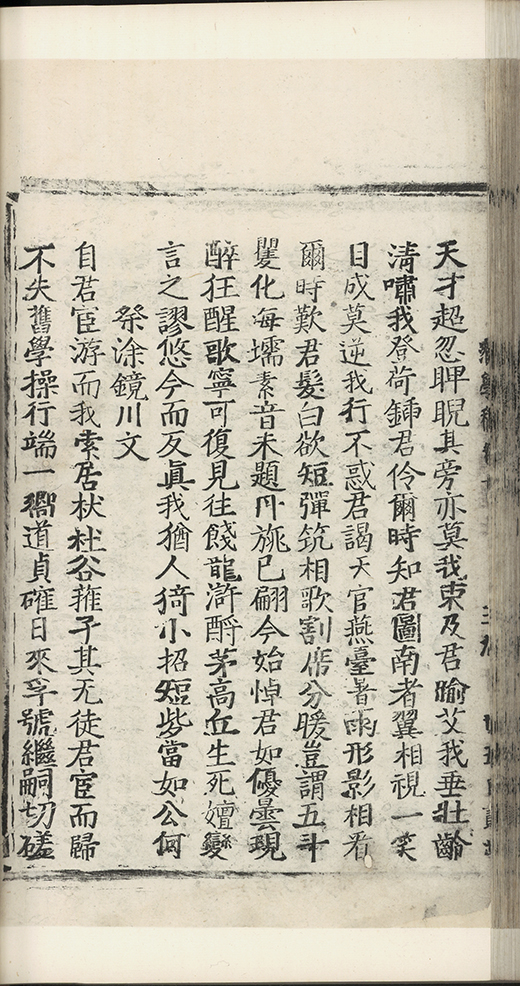 天才超忽睥睨其旁亦莫我束及君喻艾我垂壯齡
淸嘯我登荷鍤君伶爾時知君圖南者翼相視一笑
日成莫逆我行不惑君謁天官燕臺暑雨形影相看
爾時歎君髮白欲短彈筑相歌割席分暖豈謂五斗
瞿化海壖素音未題丹旐已翩今始悼君如優曇現
醉狂醒歌寧可復見往餞龍滸酹茅高丘生死嬗變
言之謬悠今而反眞我猶人猗小招短些當如公何
祭涂鏡川文
自君宦游而我索居杕杜谷蓷予其无徒君宦而歸
不失舊學操行端一嚮道貞確日來孚號繼嗣切磋